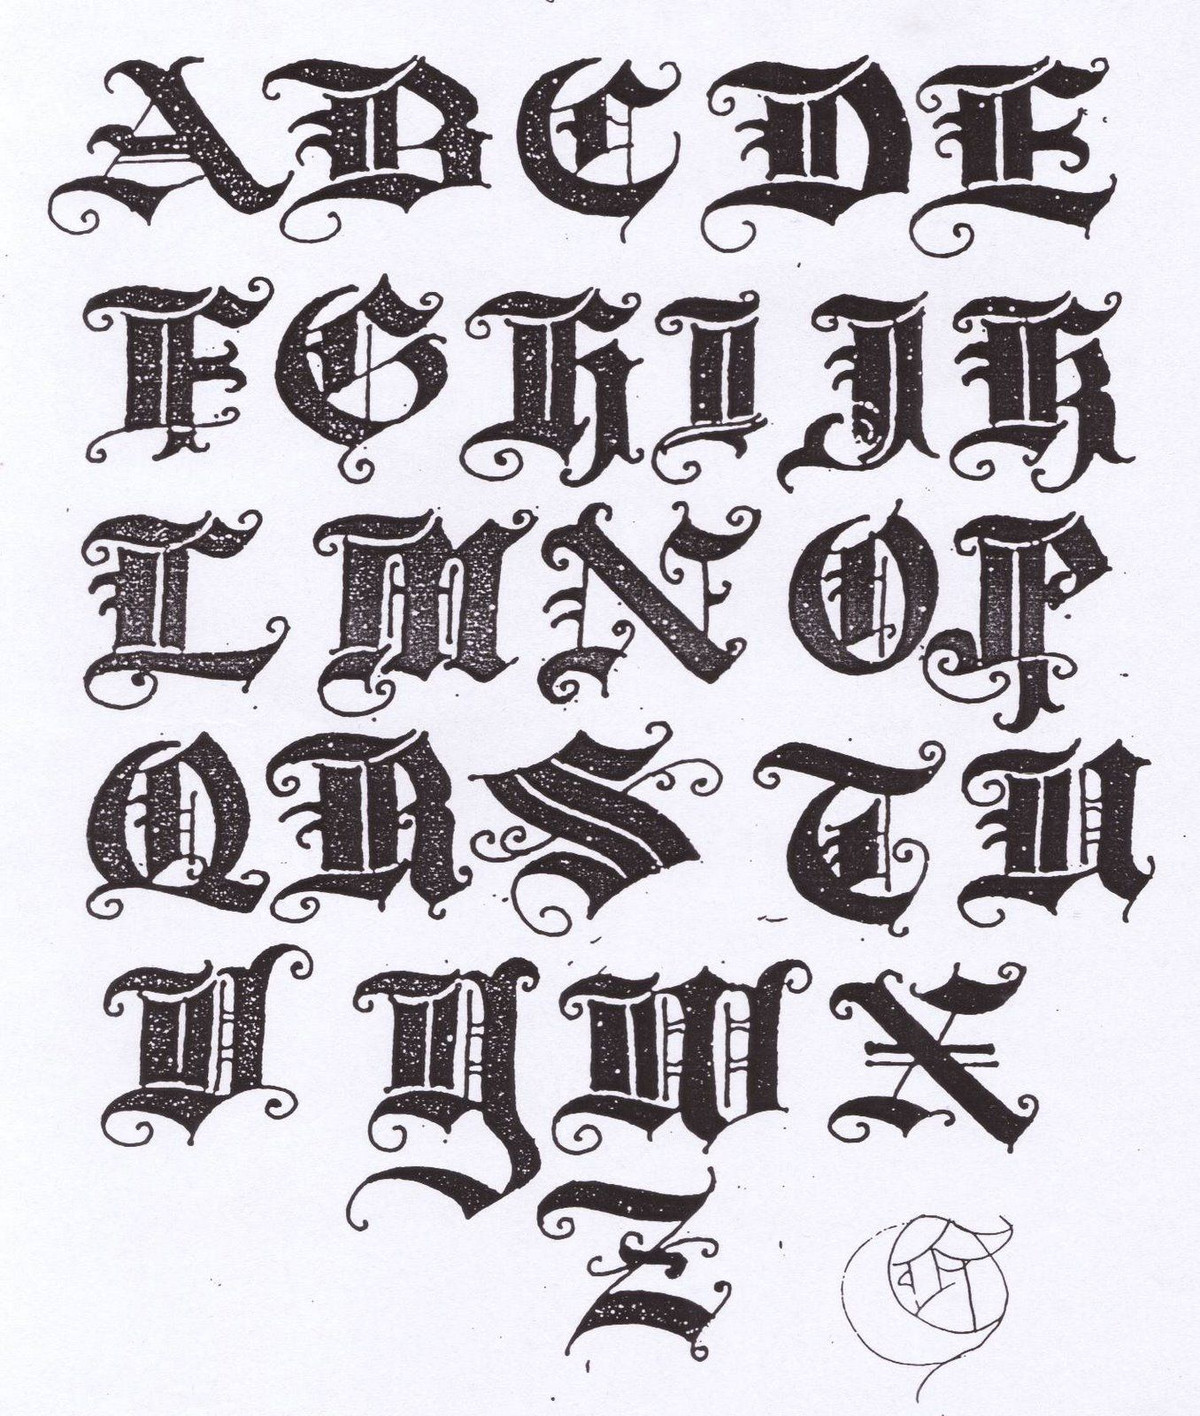 A B C D E
F G H I J K
L M N O P
Q R S T U
V Y W X
Z C